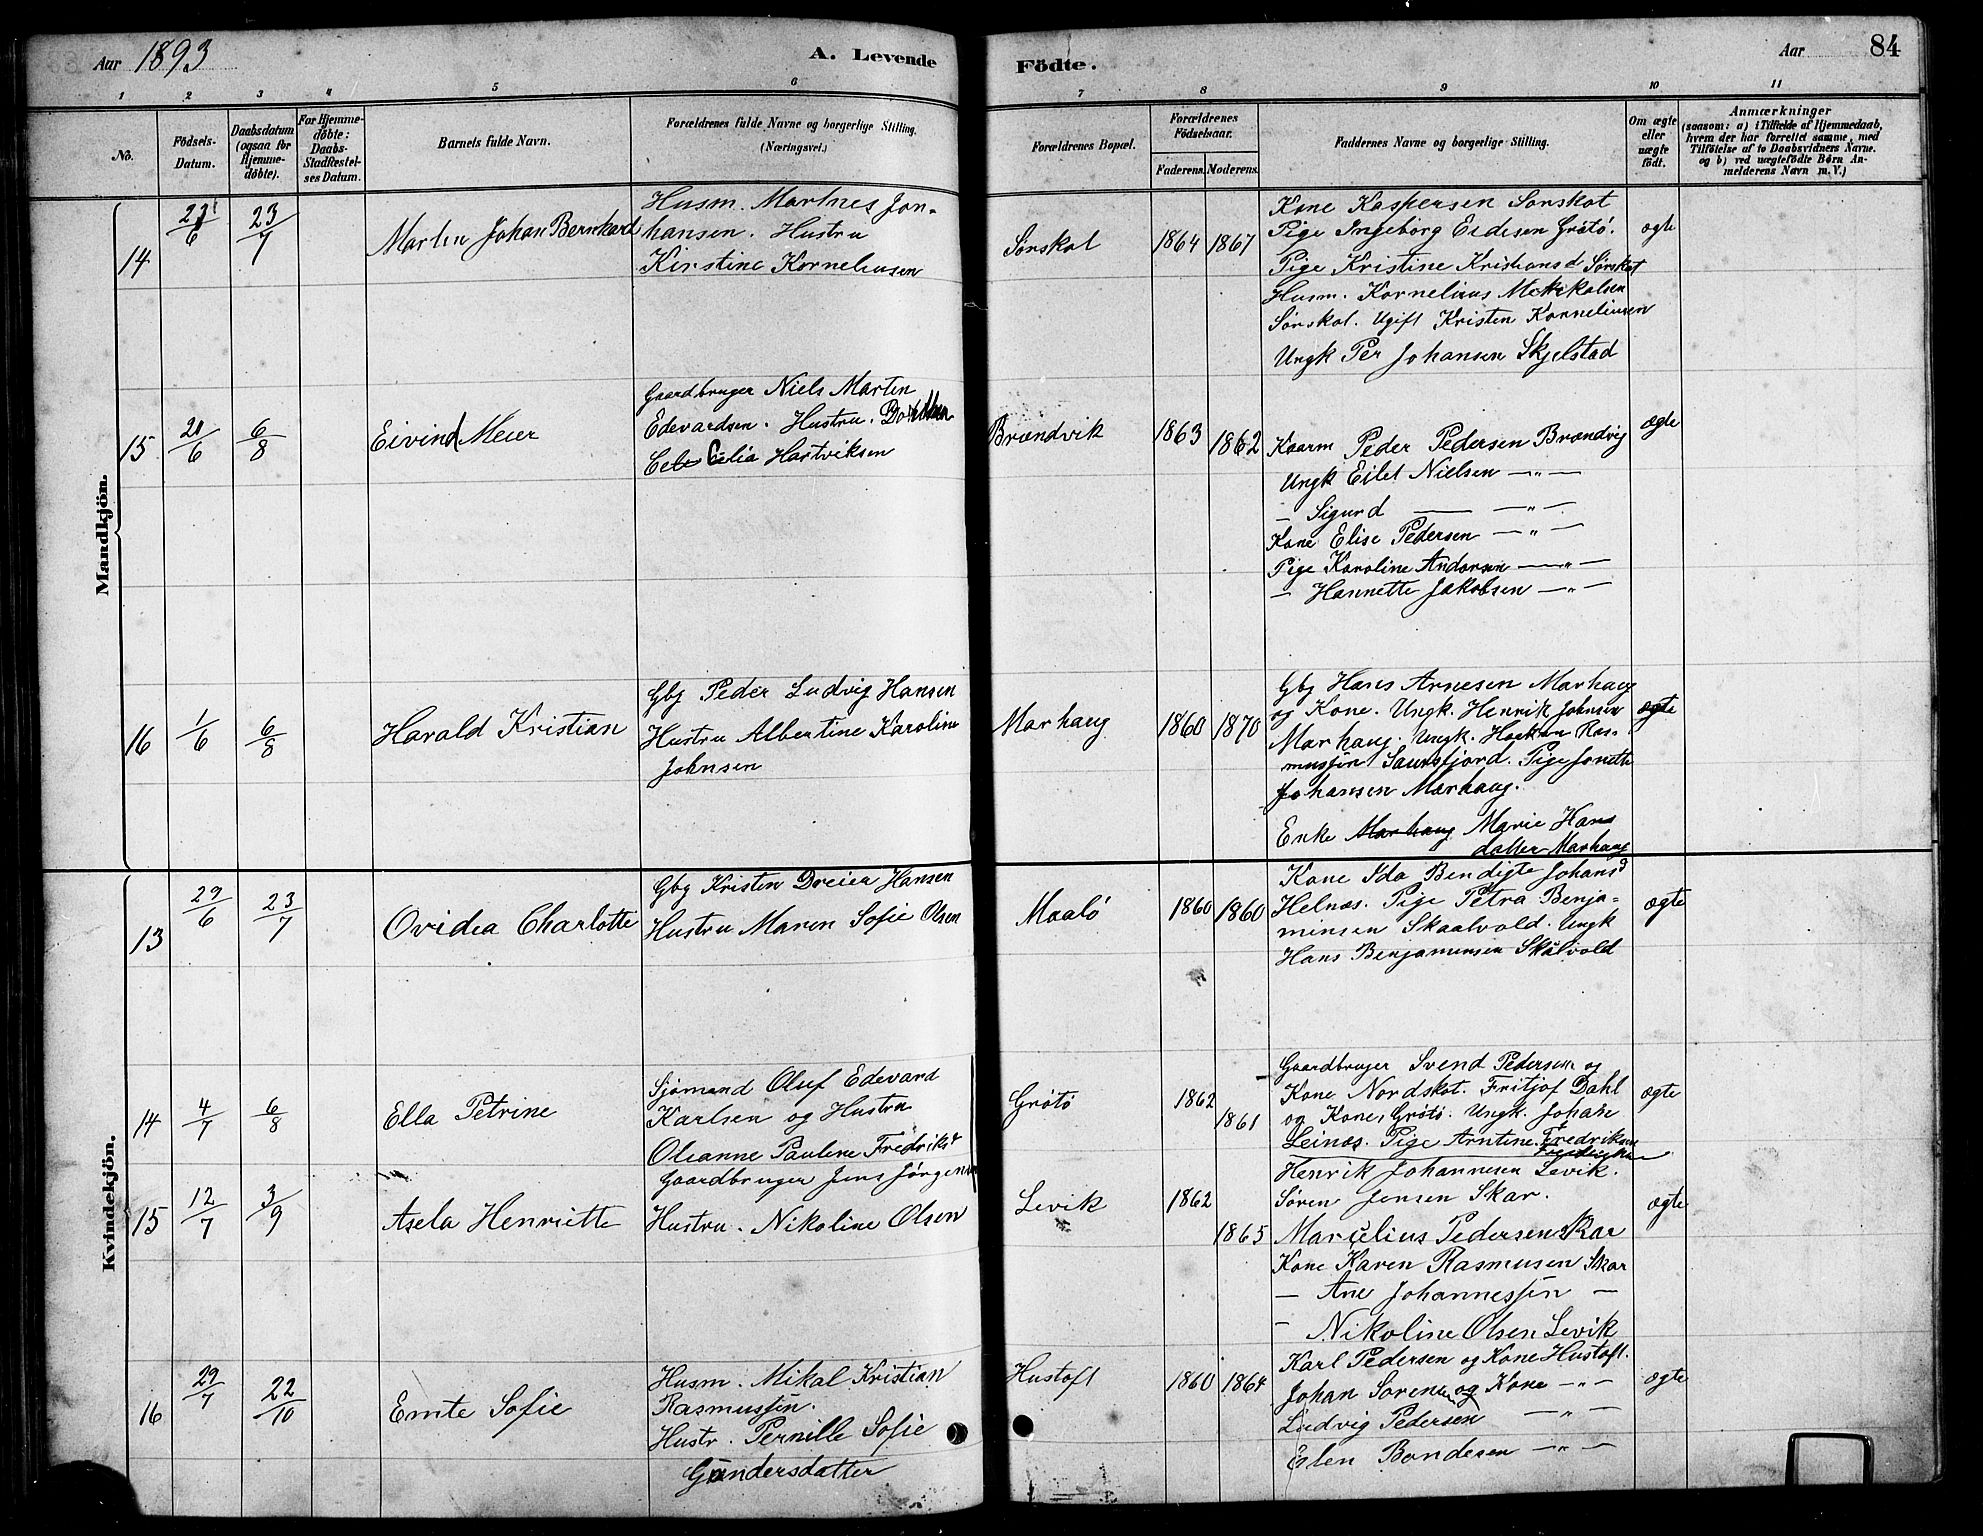 Aar 1893
A. Levende
Födte.
Aar
84
1 2 3 4 5 6 7 8 9 10 11
No.
Födsels-
Datum.
Daabsdatum
(ogsaa for
Hjemme-
döbte).
For Hjemme-
döbte:
Daabs-
Stadfestel-
ses Datum.
Barnets fulde Navn.
Forældrenes fulde Navne og borgerlige Stilling.
(Næringsvei.)
Forældrenes Bopæl.
Forældrenes
Födselsaar.
Faderens. Moderens.
Faddernes Navne og borgerlige Stilling.
Om ægte
eller
uægte
födt.
Anmærkninger
(saasom: a) i Tilfælde af Hjemmedaab,
hvem der har forrettet samme, med
Tilföielse af to Daabsvidners Navne.
og b) ved uægtefödte Börn An-
melderens Navn m. V.)
Mandkjön.
14
23/7
Martin Johan Bernhard
Husm. Martnes Jon-
hansen. Hustru
Kirstine Korneliusen
Sørskot
1864 1867
Kone Kaspersen Sørskot
Pige Ingeborg Eidesen Grötö.
Pige Kristine Kristiansd Sørskot
Husm. Kornelius Mikkalsen
Sørskot. Ugift Kristen Korneliusen
Ungk Per Johansen Skjelstad
ægte
15
20/6
6/8
Eivind Meier
Gaardbruger Niels Marten
Edevardsen. Hustru.
Celia Hartviksen
Brændvik
1863 1862
Kaarm Peder Pedersen Brændvig
Ungk Eilet Nielsen —"—
— Sigurd — —"—
Kone Elise Pedersen —"—
Pige Karoline Andersen —"—
— Hannette Jakobsen —"—
ægte
16
1/6
6/8
Harald Kristian
Gbg Peder Ludvig Hansen
Hustru Albertine Karoline
Johnsen
Marhaug
1860 1870
Gbg Hans Arnesen Marhaug
og Kone. Ungk. Henrik Johnsen
Marhaug. Ungk. Haakon Ras-
mussen Saursfjord. Pige Jonette
Johansen Marhaug.
Enke Marhaug Marie Hans
datter Marhaug
ægte
Kvindekjön.
13
29/6
23/7
Ovidea Charlotte
Gbg Kristen Dreier Hansen
Hustru Maren Sofie Olsen
Maalö
1860 1860
Kone Ida Bendigte Johansd
Helnæs. Pige Petra Benja-
minsen Skaalvold. Ungk
Hans Benjaminsen Skålvold
ægte
14
4/7
6/8
Ella Petrine
Sjømand Oluf Edevard
Karlsen og Hustru
Olianne Pauline Fredriksd
Grötö
1862
1861
Gaardbruger Svend Pedersen og
Kone Nordskot. Fritjof Dahl
og Kone, Grötö. Ungk. Johan
Leinæs. Pige Arntine Fredriksen
ægte
15
12/7
3/9
Asela Henriette
Gaardbruger Jens Jörgensen
Hustru. Nikoline Olsen
Levik
1862
1865
Henrik Johannesen Levik.
Søren Jensen Skar.
Marcelius Pedersen Skar
Kone Karen Rasmusen Skar
— Ane Johannessen —
— Nikoline Olsen Levik
ægte
16
29/7
22/10
Emte Sofie
Husm. Mikal Kristian
Rasmussen.
Hustr. Pernille Sofie
Gundersdatter
Hustoft
1860 1864
Karl Pedersen og Kone Hustoft.
Johan Sorensen og Kone —"—
Ludvig Pedersen —"—
Elen Bandesen —"—
ægte